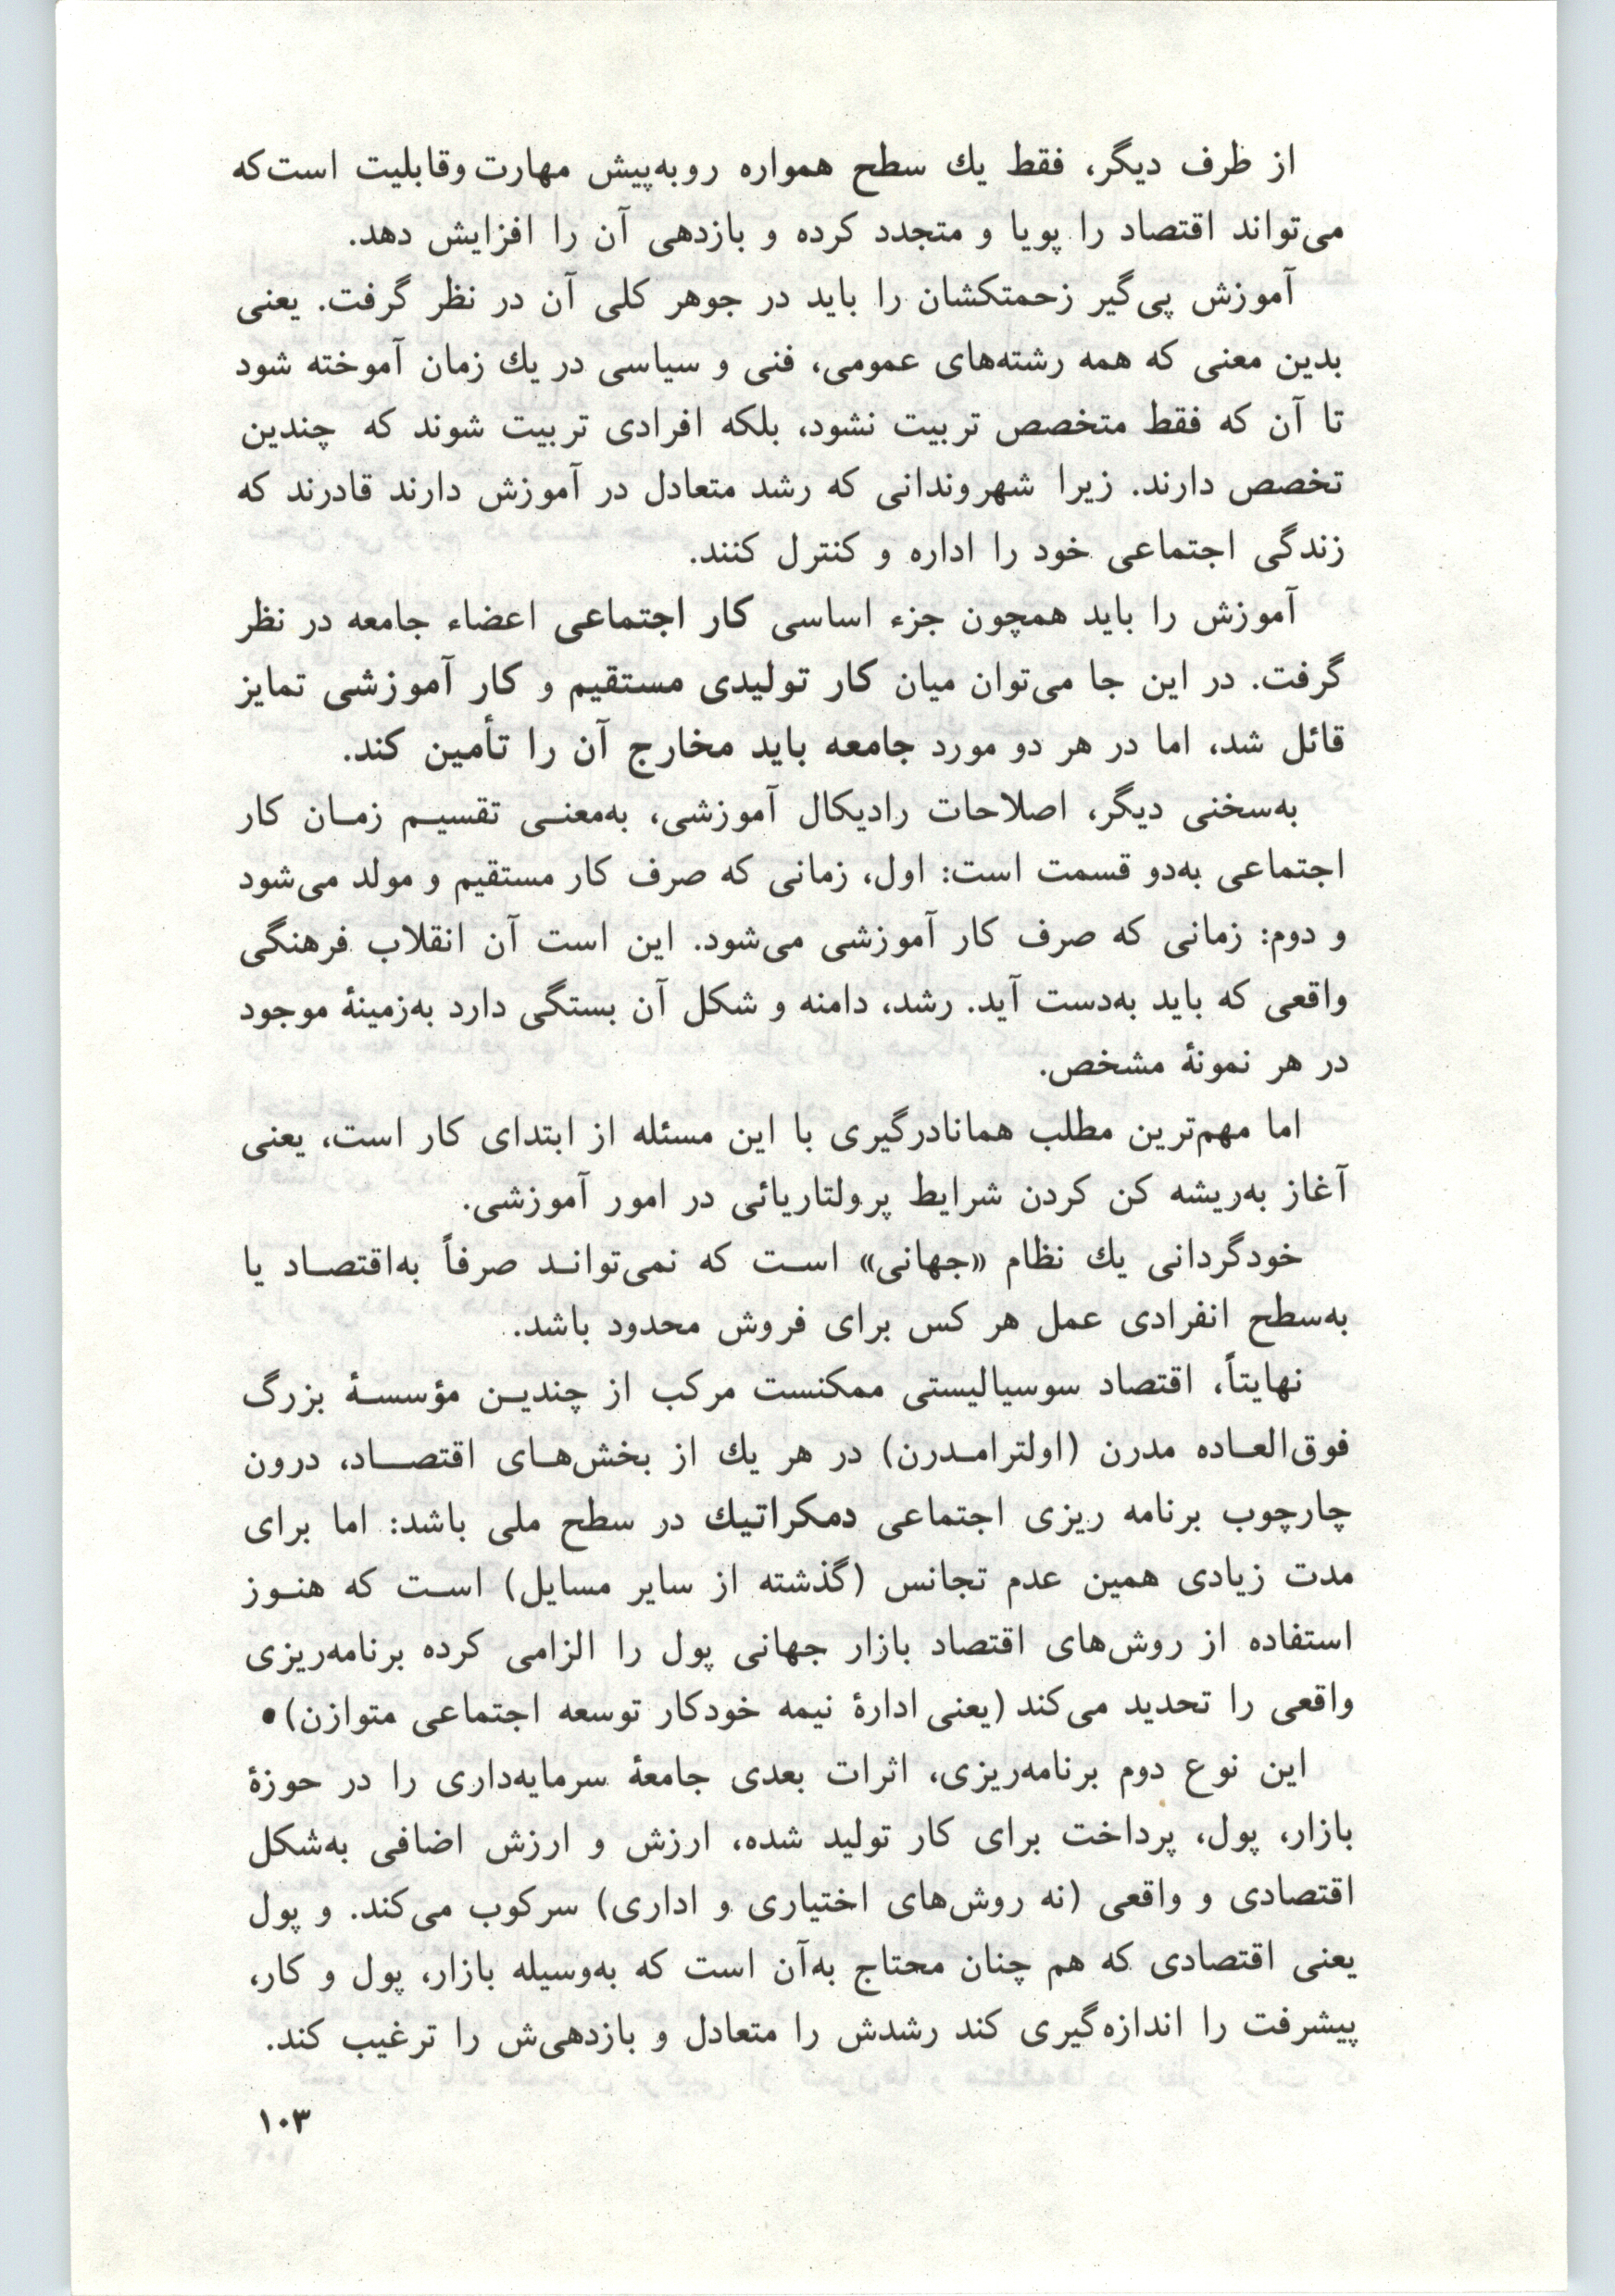 از طرف دیگر، فقط یك سطح همواره روبه‌پیش مهارت وقابلیت است‌که
می‌تواند اقتصاد را پویا و متجدد کرده و بازدهی آن را افزایش دهد.
آموزش پی‌گیر زحمتکشان را باید در جوهر کلی آن در نظر گرفت. یعنی
بدین معنی که همه رشته‌های عمومی، فنی و سیاسی در یك زمان آموخته شود
تا آن که فقط متخصص تربیت نشود، بلکه افرادی تربیت شوند که چندین
تخصص دارند. زیرا شهروندانی که رشد متعادل در آموزش دارند قادرند که
زندگی اجتماعی خود را اداره و کنترل کنند.
آموزش را باید همچون جزء اساسی کار اجتماعی اعضاء جامعه در نظر
گرفت. در این جا می‌توان میان کار تولیدی مستقیم و کار آموزشی تمایز
قائل شد، اما در هر دو مورد جامعه باید مخارج آن را تأمین کند.
به‌سخنی دیگر، اصلاحات رادیکال آموزشی، به‌معنـی تقسیـم زمـان کار
اجتماعی به‌دو قسمت است: اول، زمانی که صرف کار مستقیم و مولد می‌شود
و دوم: زمانی که صرف کار آموزشی می‌شود. این است آن انقلاب فرهنگی
واقعی که باید به‌دست آید. رشد، دامنه و شکل آن بستگی دارد به‌زمینهٔ موجود
در هر نمونهٔ مشخص.
اما مهم‌ترین مطلب همانادرگیری با این مسئله از ابتدای کار است، یعنی
آغاز به‌ریشه کن کردن شرایط پرولتاریائی در امور آموزشی.
خودگردانی یك نظام «جهانی» اسـت که نمی‌توانـد صرفاً به‌اقتصـاد یا
به‌سطح انفرادی عمل هر کس برای فروش محدود باشد.
نهایتاً، اقتصاد سوسیالیستی ممکنست مرکب از چندیـن مؤسسـهٔ بزرگ
فوق‌العـاده مدرن (اولترامـدرن) در هر یك از بخش‌هـای اقتصـاد، درون
چارچوب برنامه ریزی اجتماعی دمکراتیك در سطح ملی باشد: اما برای
مدت زیادی همین عدم تجانس (گذشته از سایر مسایل) اسـت که هنـوز
استفاده از روش‌های اقتصاد بازار جهانی پول را الزامی کرده برنامه‌ریزی
واقعی را تحدید می‌کند (یعنی ادارهٔ نیمه خودکار توسعه اجتماعی متوازن)•
این نوع دوم برنامه‌ریزی، اثرات بعدی جامعهٔ سرمایه‌داری را در حوزهٔ
بازار، پول، پرداخت برای کار تولید شده، ارزش و ارزش اضافی به‌شکل
اقتصادی و واقعی (نه روش‌های اختیاری و اداری) سرکوب می‌کند. و پول
یعنی اقتصادی که هم چنان محتاج به‌آن است که به‌وسیله بازار، پول و کار،
پیشرفت را اندازه‌گیری کند رشدش را متعادل و بازدهی‌ش را ترغیب کند.
۱۰۳